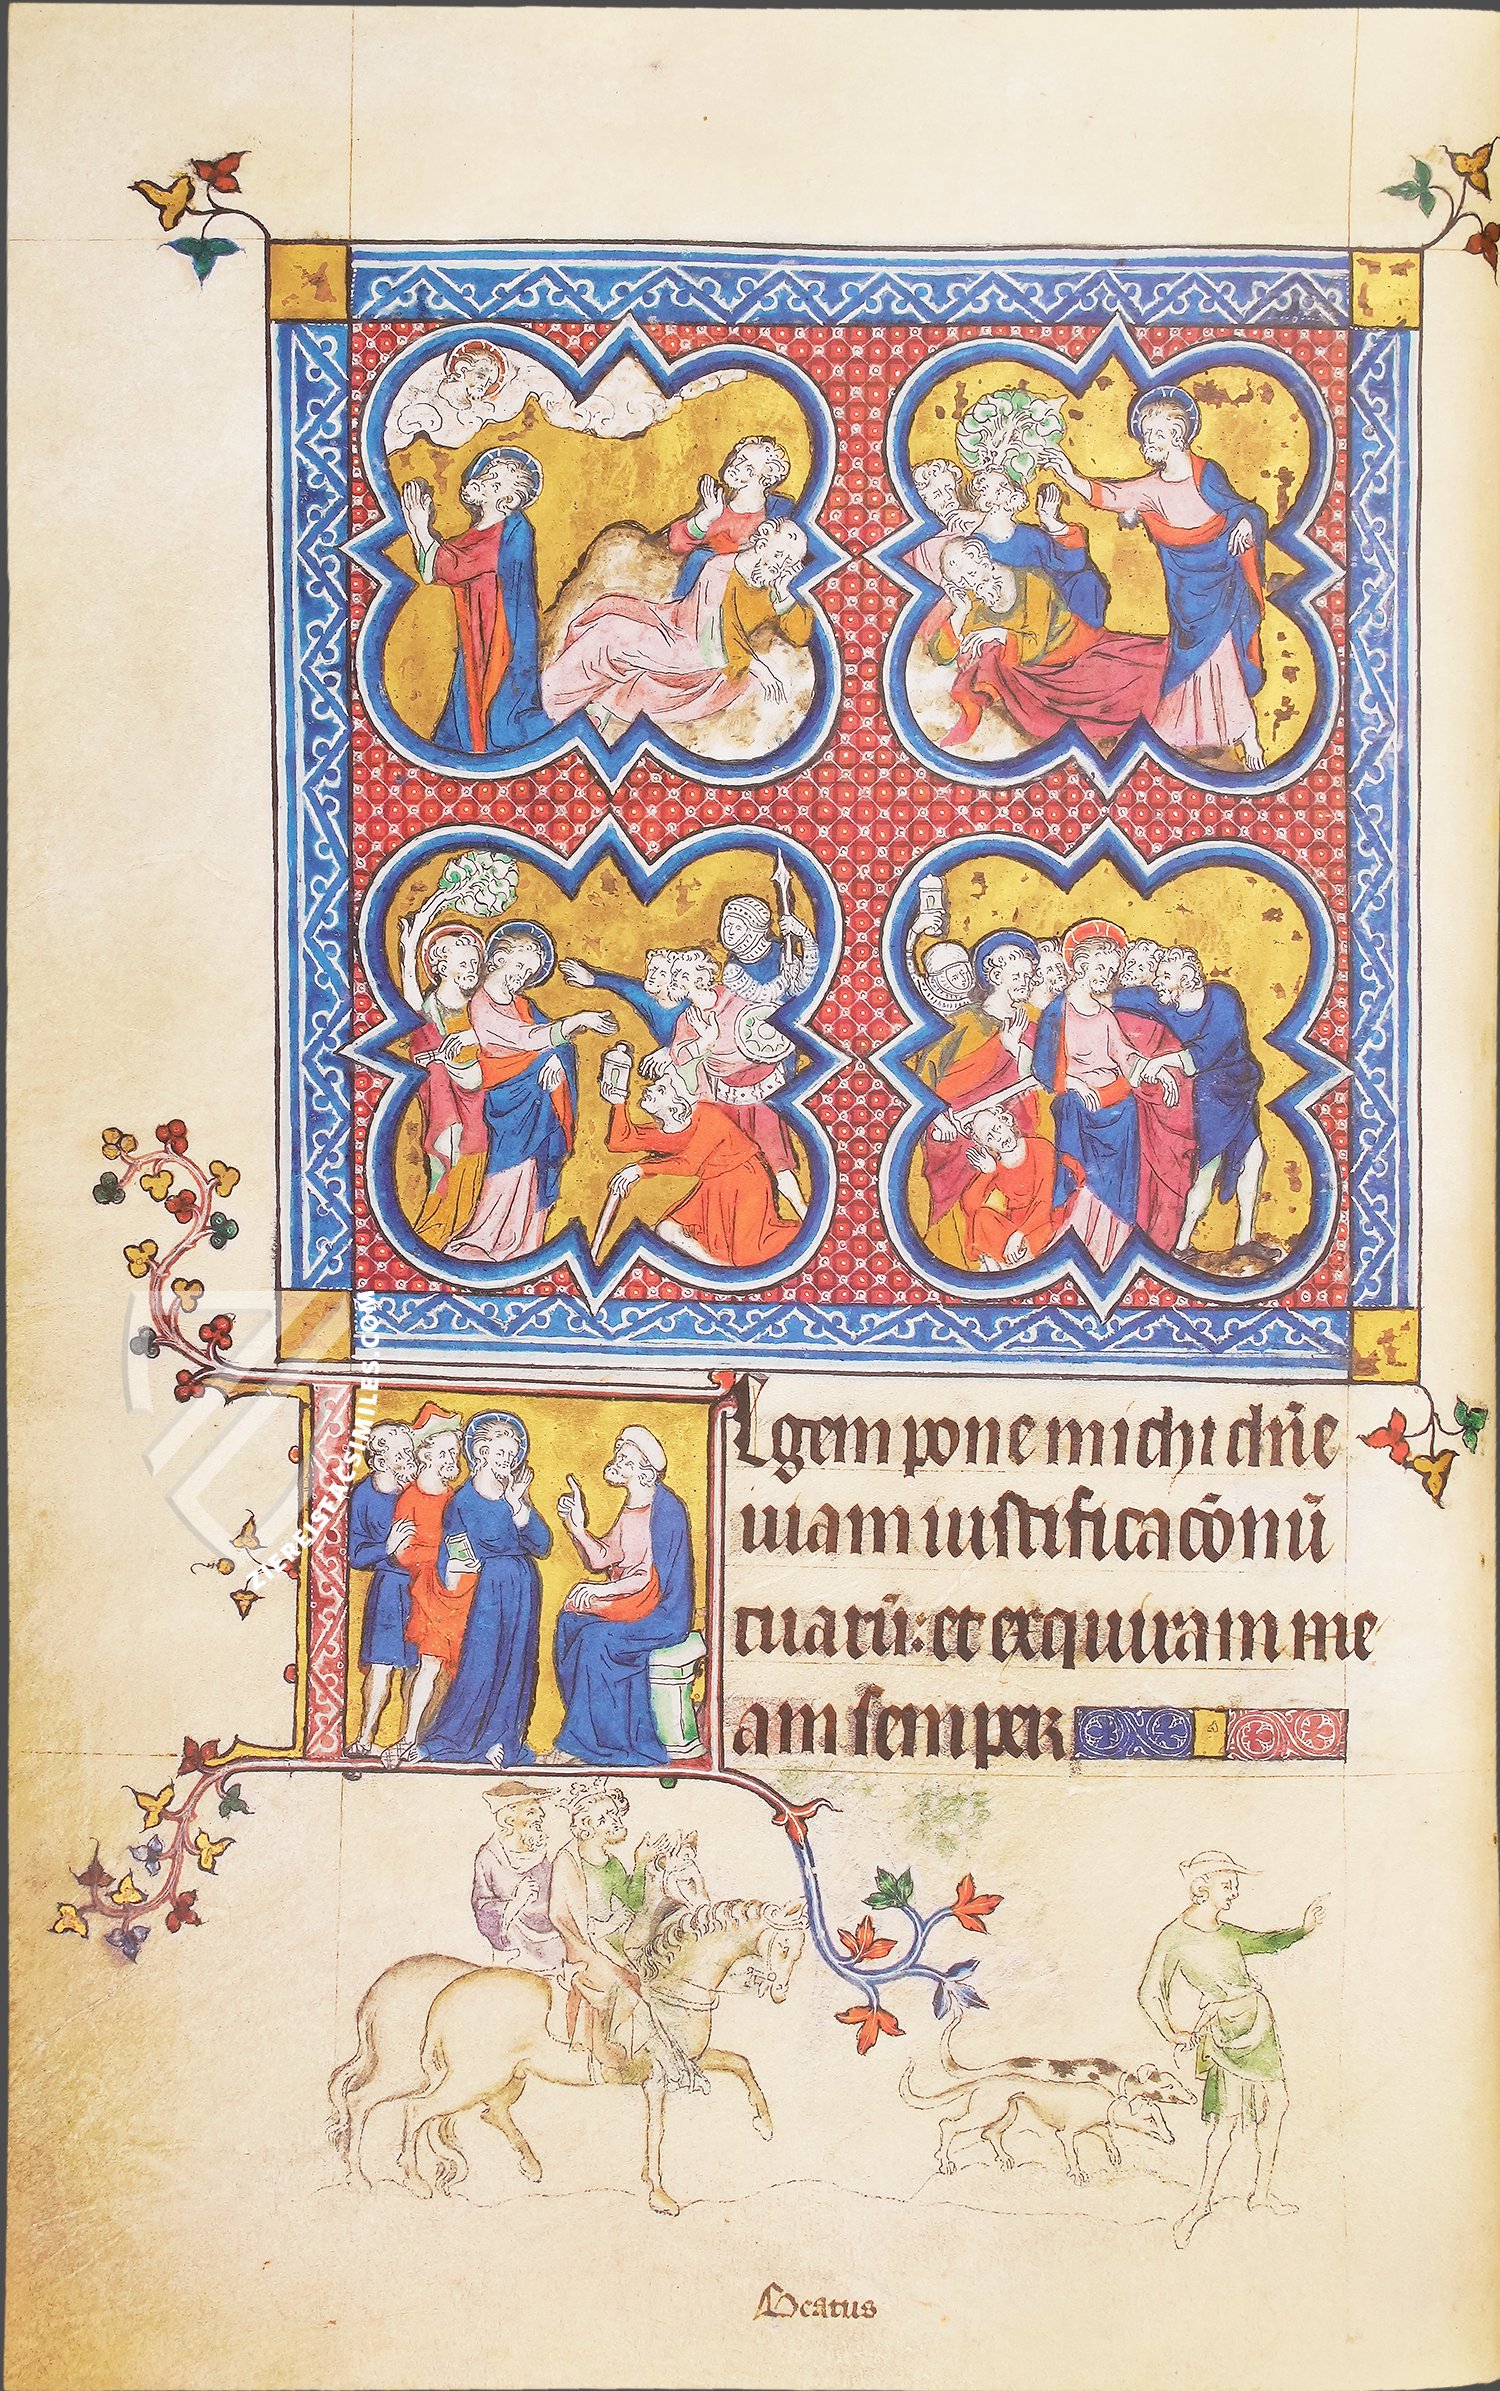 Legem pone michi dn̄e
uiam iustificacōnū
tuarū: et exquiram me
am semper
Beatus
ZIEREISFACSIMILES.COM